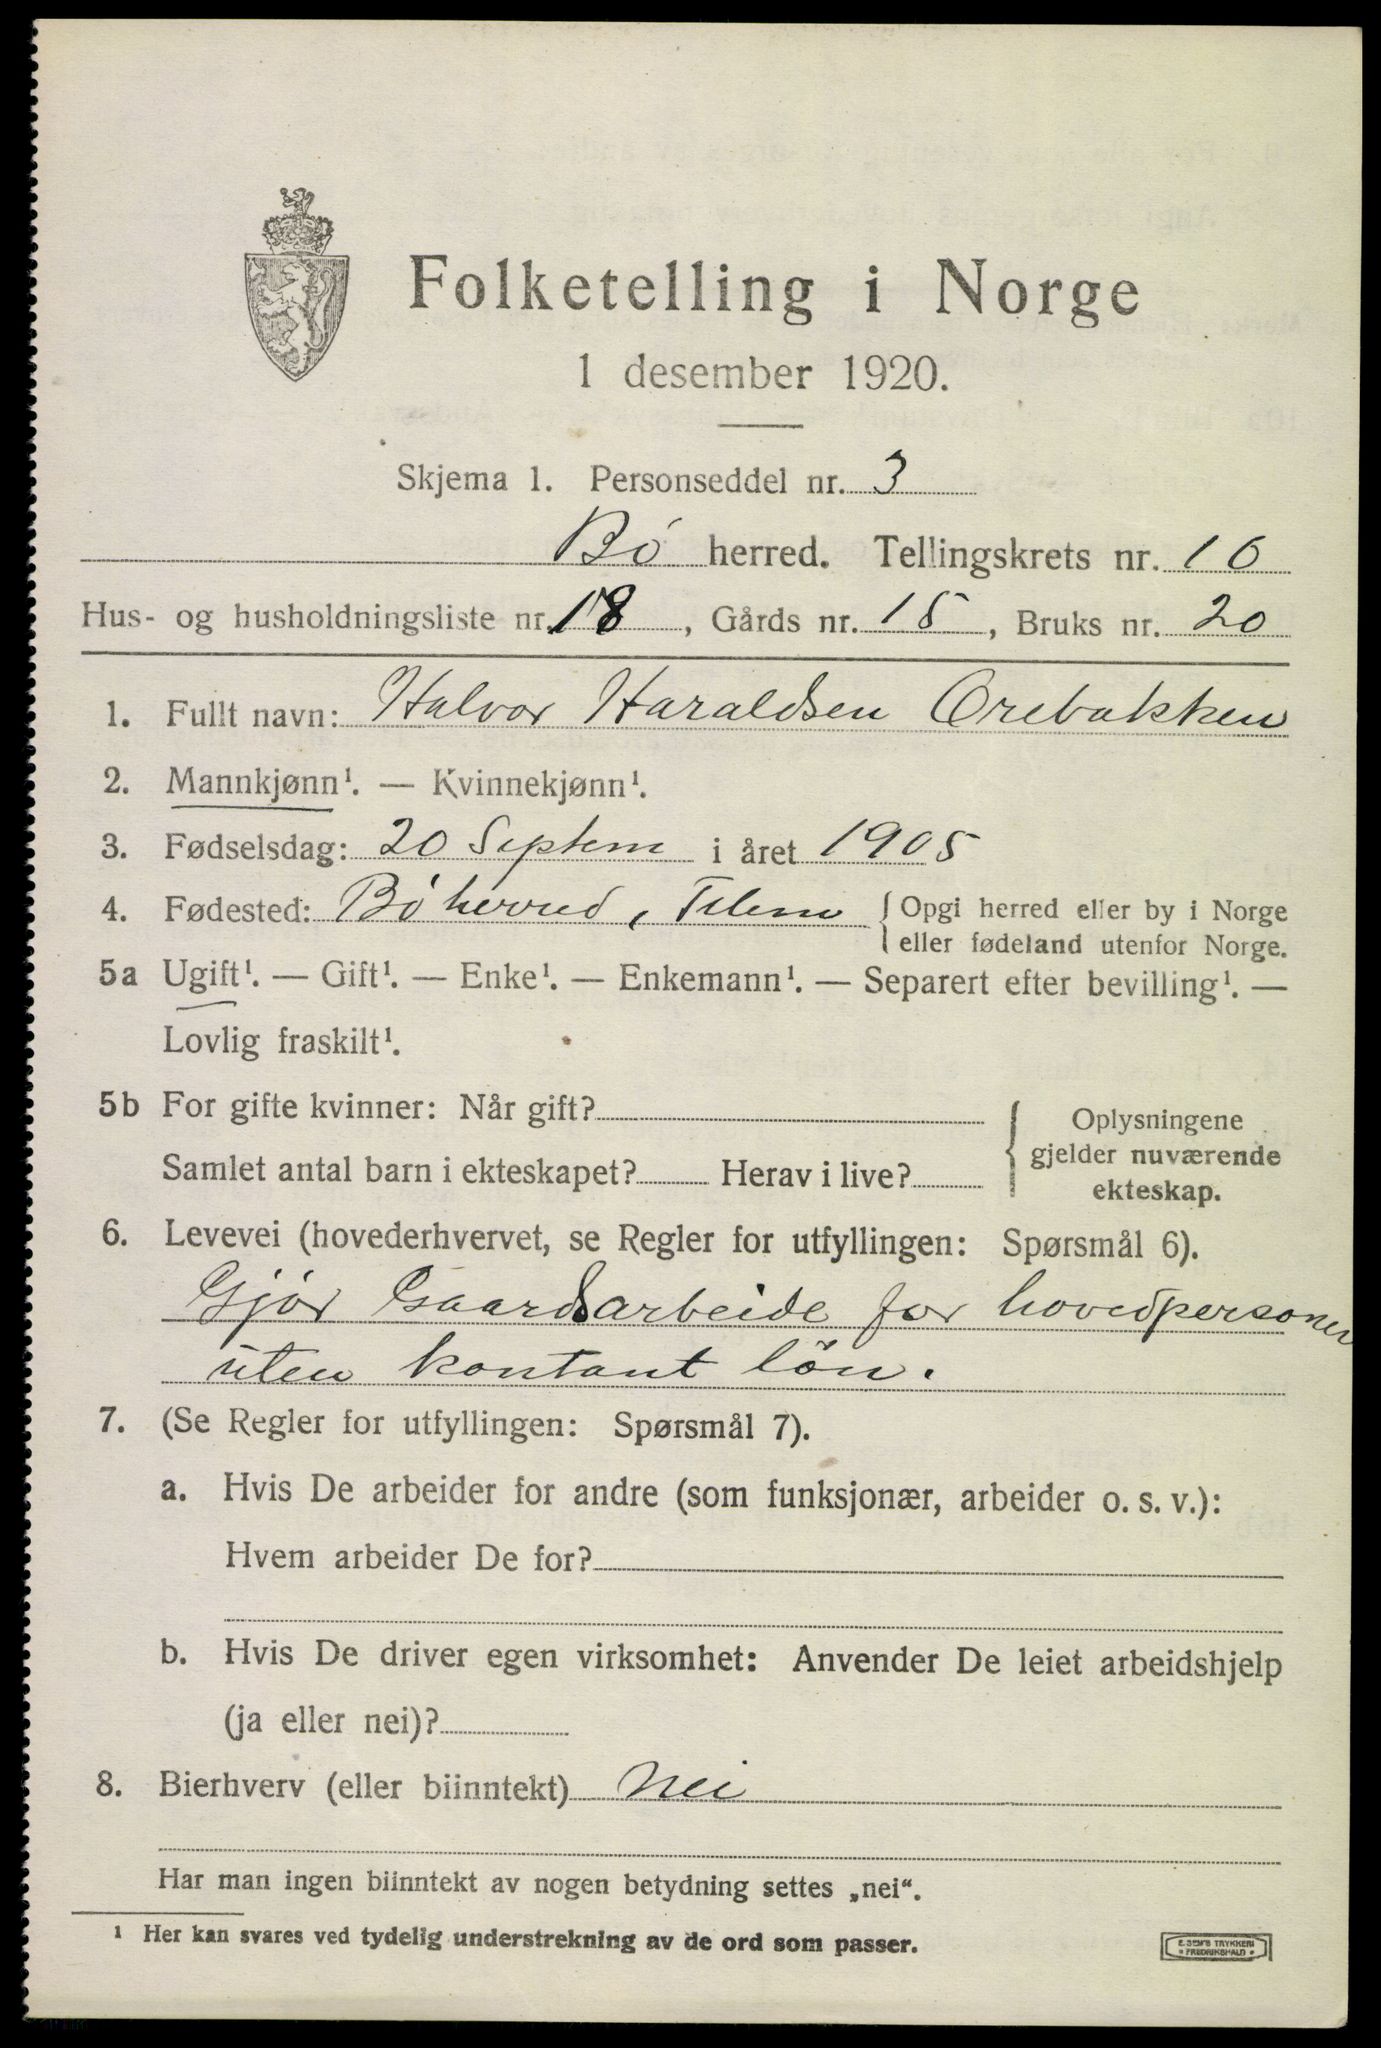 Folketelling i Norge
1 desember 1920.
Skjema 1. Personseddel nr. 3
Bó herred. Tellingskrets nr. 10
Hus- og husholdningsliste nr. 18, Gårds nr. 15, Bruks nr. 20
1. Fullt navn: Halvor Haraldsen Orebakken
2. Mannkjønn¹. — Kvinnekjønn¹.
3. Fødselsdag: 20 Septem i året 1905
4. Fødested: Bó herred, Telem { Opgi herred eller by i Norge
eller fødeland utenfor Norge.
5a Ugift¹. — Gift¹. — Enke¹. — Enkemann¹. — Separert efter bevilling¹. —
Lovlig fraskilt¹.
5b For gifte kvinner: Når gift?
Samlet antal barn i ekteskapet? Herav i live?
{ Oplysningene
gjelder nuværende
ekteskap.
6. Levevei (hovederhvervet, se Regler for utfyllingen: Spørsmål 6).
Gjór Gaardsarbeide for hovedpersonen
uten kontant lön.
7. (Se Regler for utfyllingen: Spørsmål 7).
a. Hvis De arbeider for andre (som funksjonær, arbeider o. s. v.):
Hvem arbeider De for?
b. Hvis De driver egen virksomhet: Anvender De leiet arbeidshjelp
(ja eller nei)?
8. Bierhverv (eller biinntekt) Nei
Har man ingen biinntekt av nogen betydning settes „nei“.
¹ Her kan svares ved tydelig understrekning av de ord som passer.
E. SEM'S TRYKKERI
• FREDRIKSHALD •